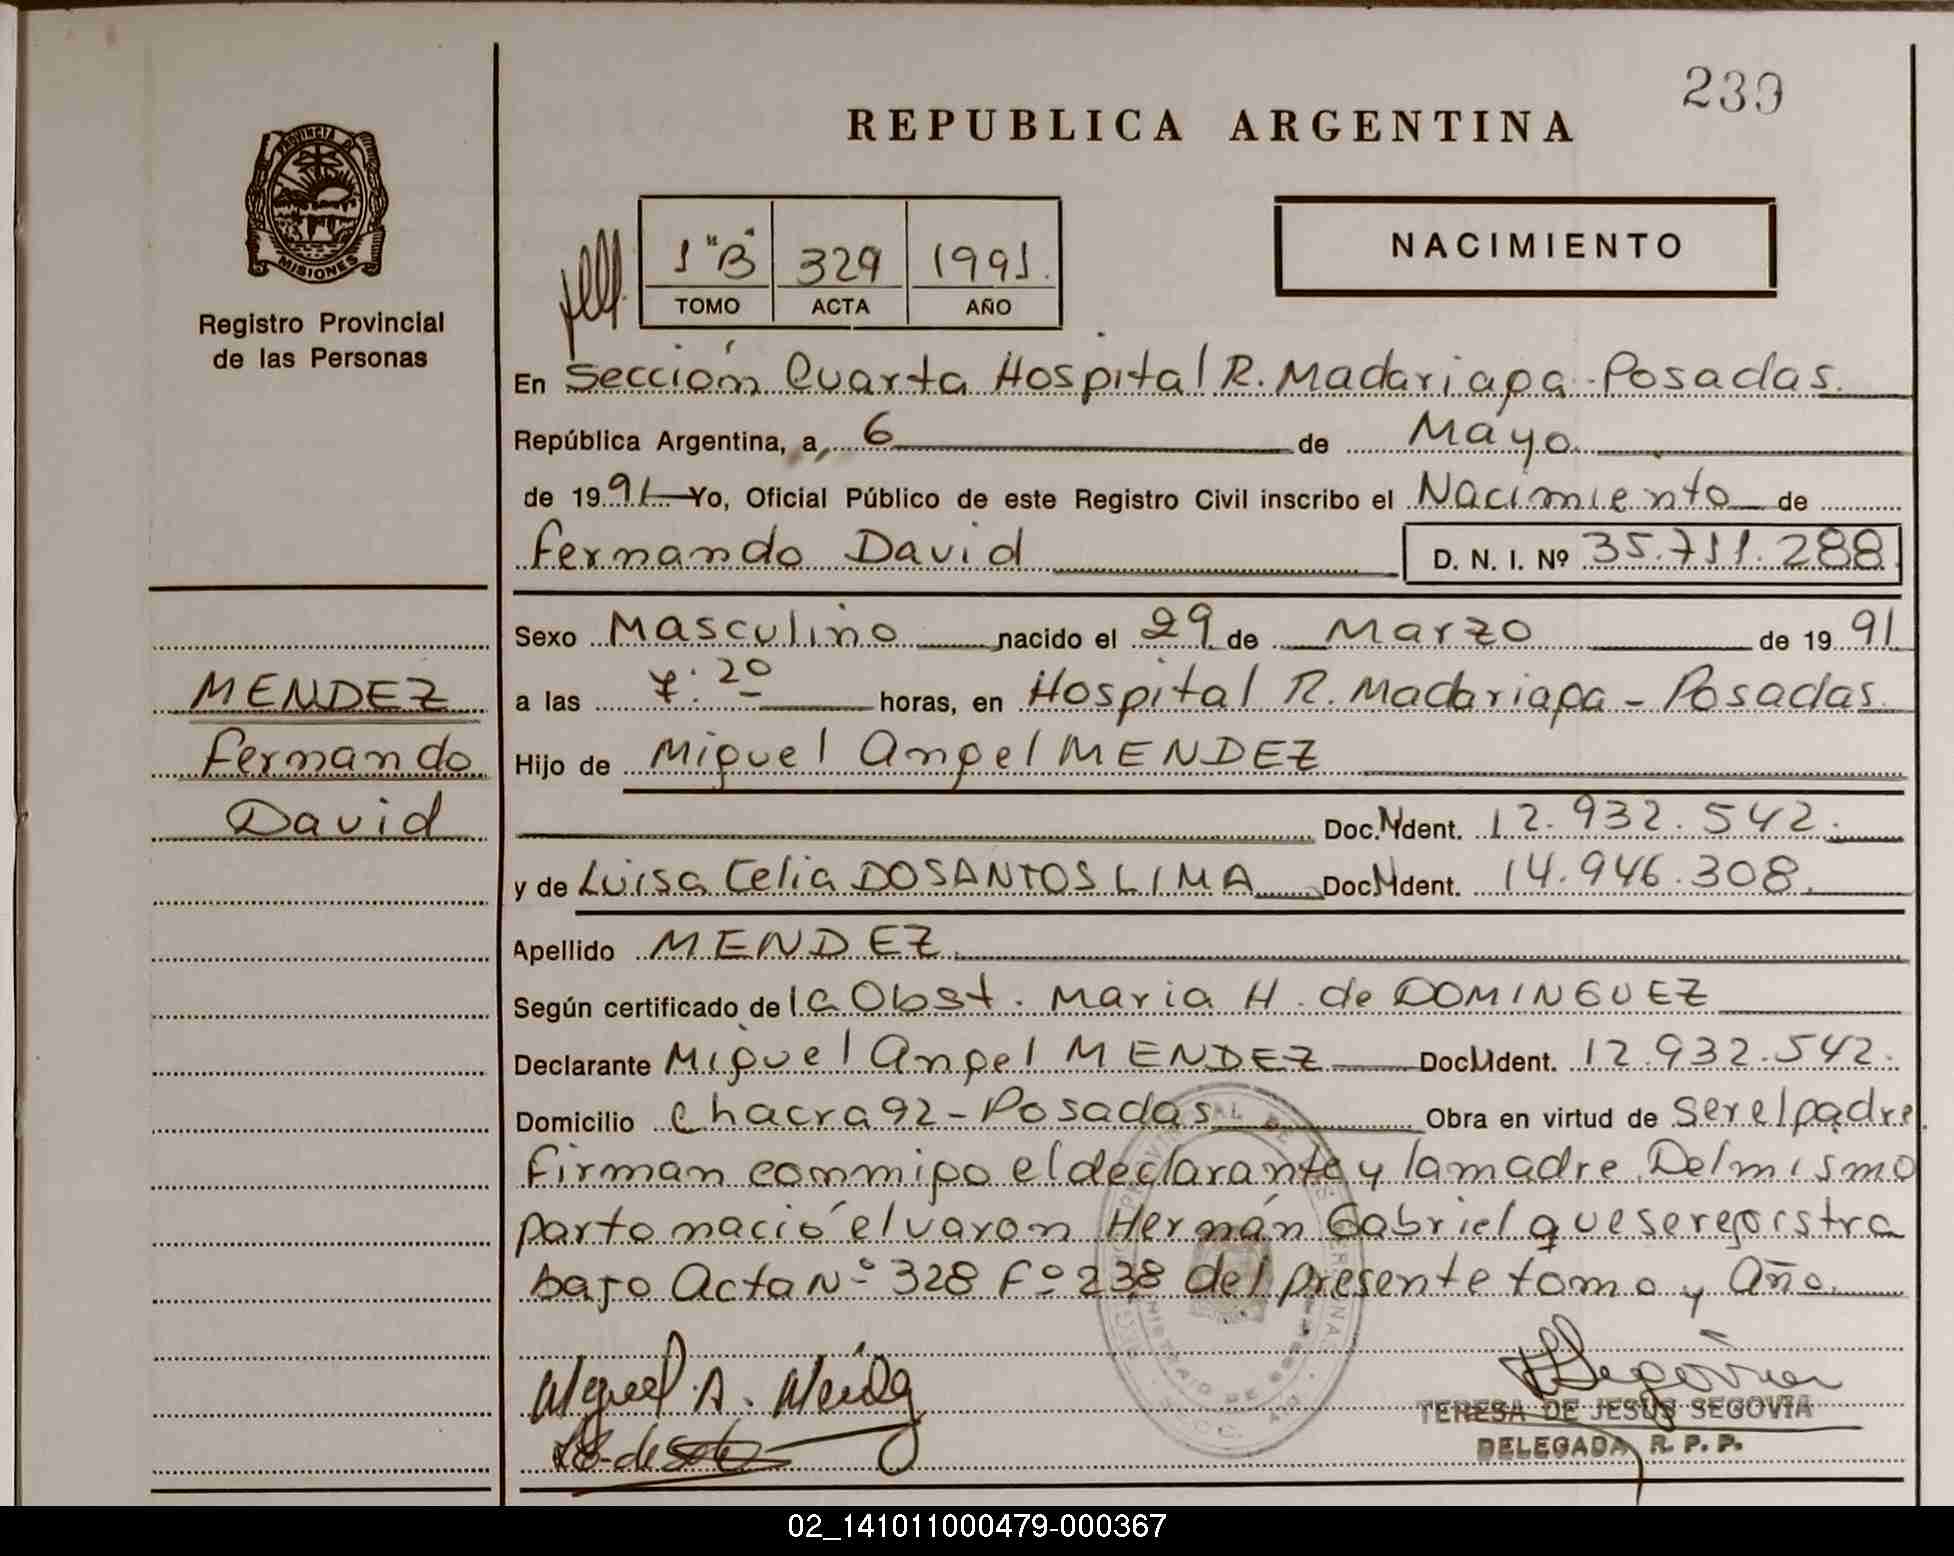 239
REPUBLICA ARGENTINA
PROVINCIA D
MISIONES
Registro Provincial
de las Personas
1 "B" 329 1991.
TOMO ACTA AÑO
NACIMIENTO
En Sección Cuarta Hospital R. Madariaga - Posadas.
República Argentina, a, 6 de Mayo
de 1991 Yo, Oficial Público de este Registro Civil inscribo el Nacimiento de
Fernando David D. N. I. Nº 35.711.288
Sexo Masculino nacido el 29 de Marzo de 1991
a las 7:20 horas, en Hospital R. Madariaga - Posadas
Hijo de Miguel Angel MENDEZ
Doc. Ident. 12.932.542.
y de Luisa Celia DOSANTOS LIMA Doc Ident. 14.946.308.
Apellido MENDEZ
Según certificado de la Obst. Maria H. de DOMINGUEZ
Declarante Miguel Angel MENDEZ Doc Ident. 12.932.542.
Domicilio Chacra 92 - Posadas Obra en virtud de ser el padre
firman conmigo el declarante y la madre. Del mismo
parto nació el varon Hernán Gabriel que se registra
bajo Acta Nº 328 Fº 238 del presente tomo y Año.
MENDEZ
Fernando
David
Miguel A. Mendez
Segovia
TERESA DE JESUS SEGOVIA
DELEGADA R. P. P.
02_141011000479-000367